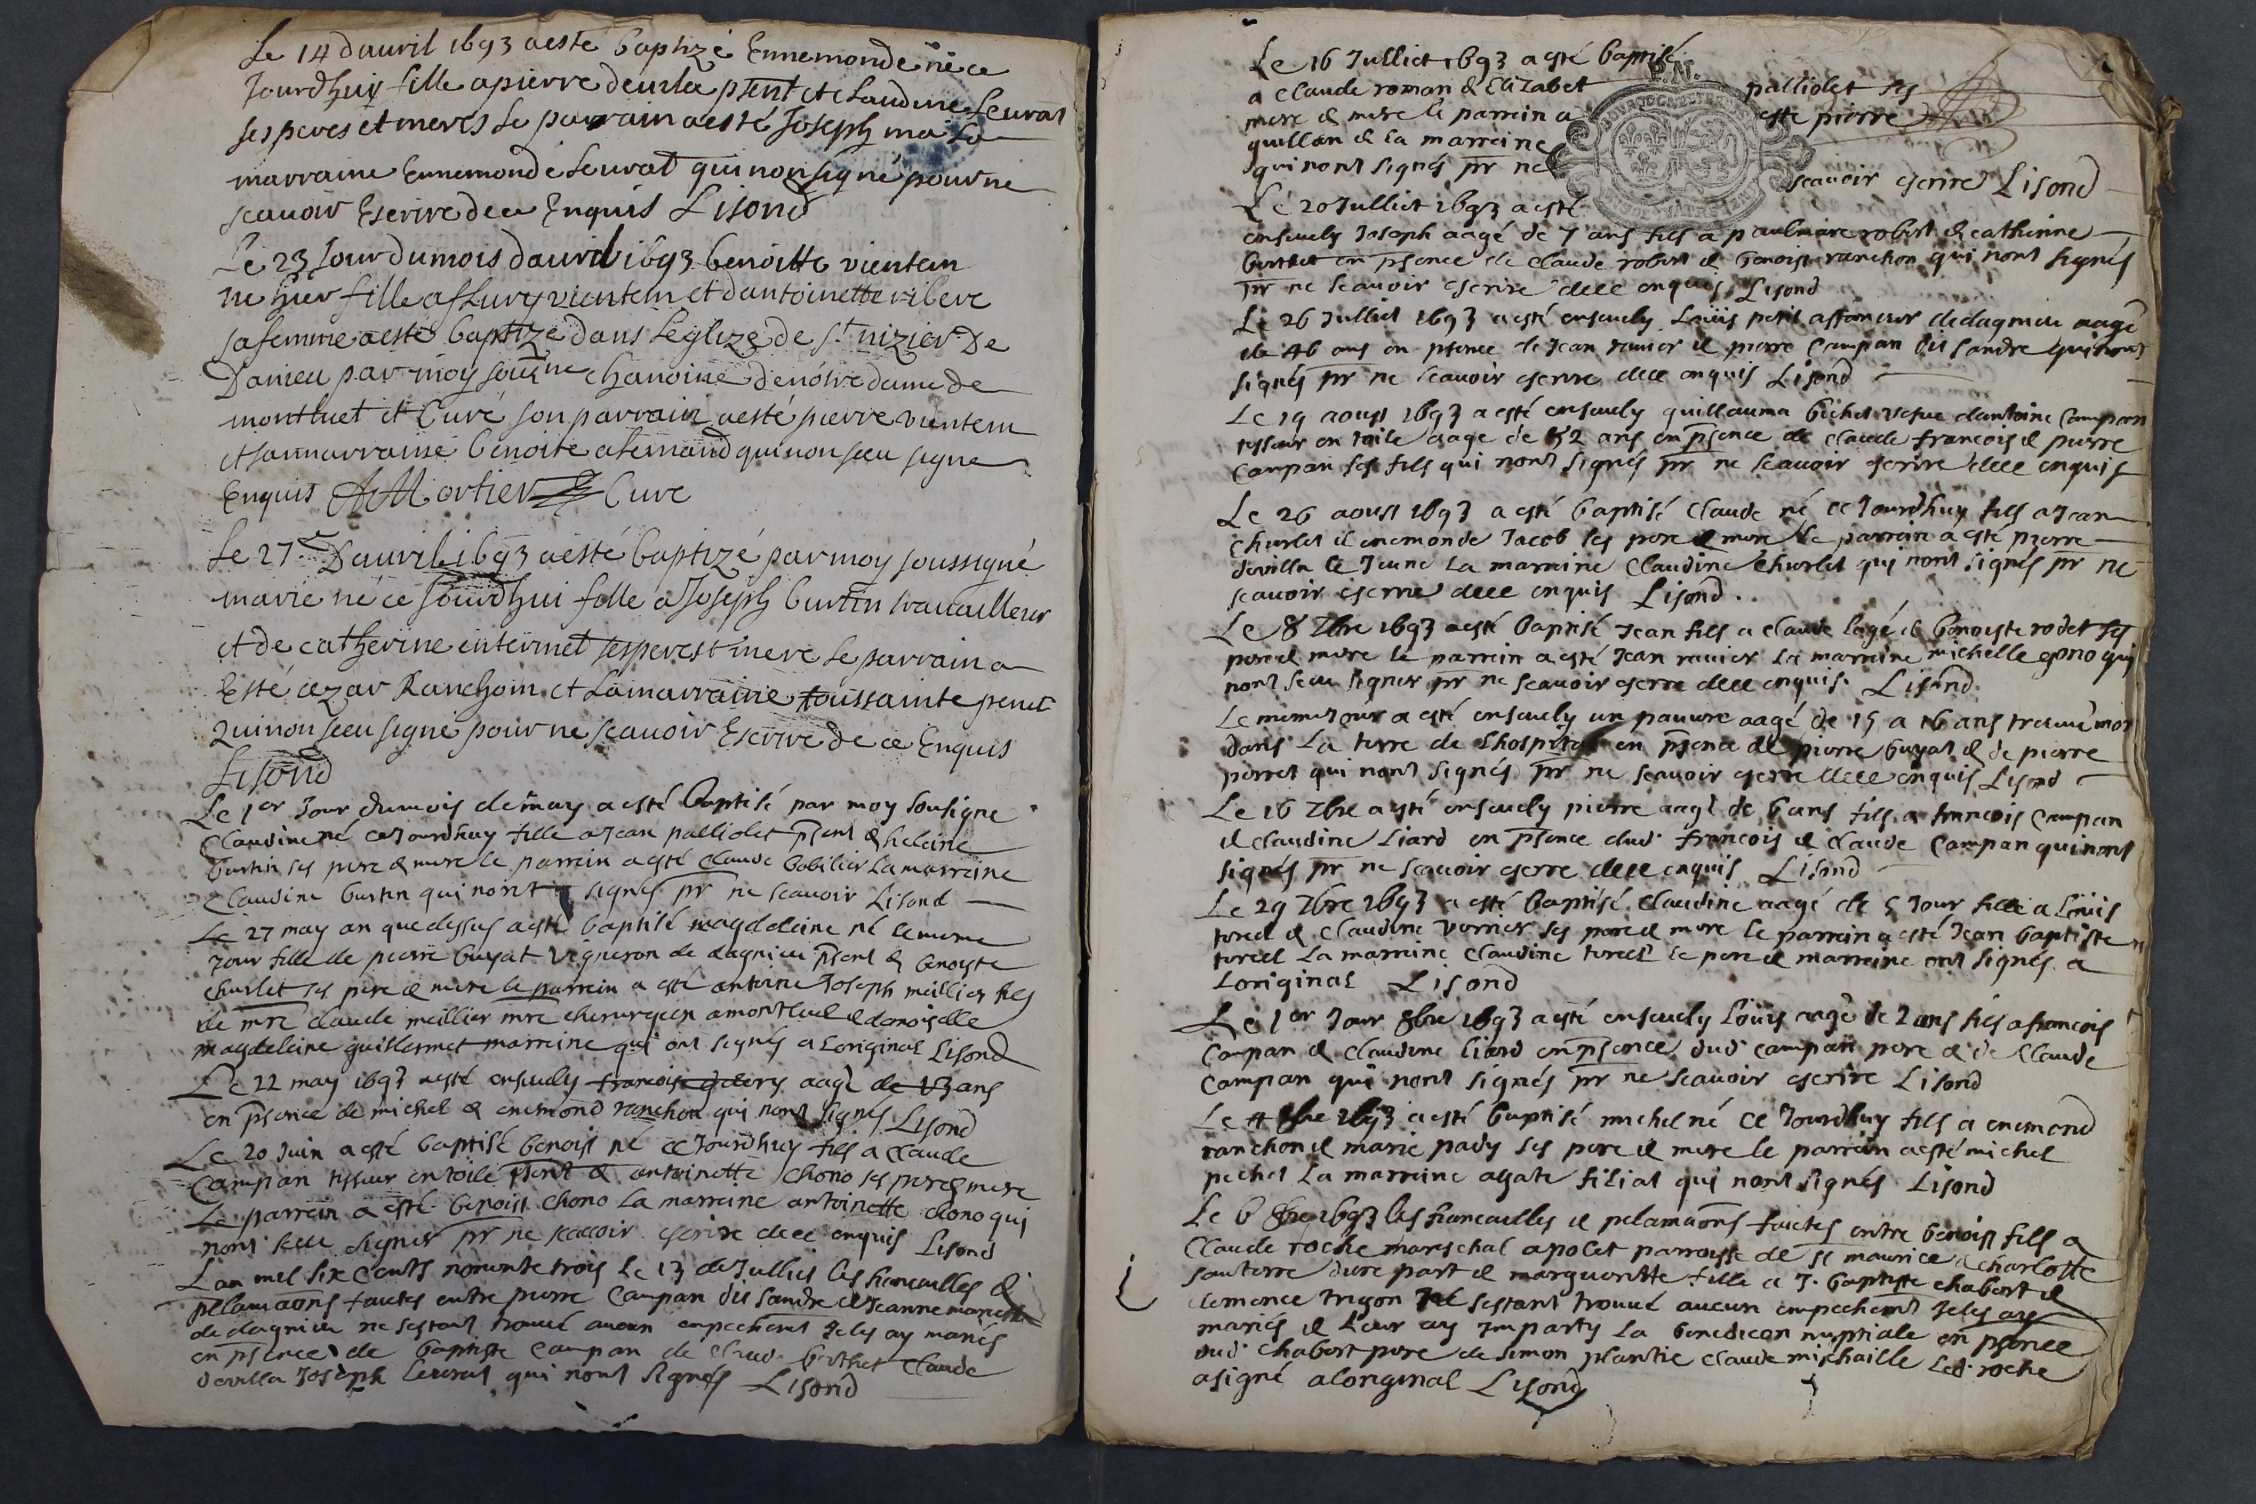 Le 14 dauvril 1693 a esté baptizé Ennemonde né ce
Jourdhuy fille a pierre deuila pñt et Claudine Leurat
ses peres et meres le parrain a esté Joseph ma La
marraine Ennemonde Leurat qui non signé pour ne
scauoir Escrire de ce Enquis Lisond
Le 23 Jour du mois dauvril 1693 benoitte vientem
ne hier fille a fleury vientem et dantoinette ribere
sa femme a esté baptizé dans Léglize de St nizier De
Danieu par moy sousne chanoine de nôtre dame de
montluet et Curé son parrain a esté pierre vientem
et sa marraine benoite alemand qui non sceu signe
Enquis Mortier Curé
Le 27e Dauvril 1693 a esté baptizé par moy soussigné
marie né ce Jourdhui fille a Joseph burtin trauailleur
et de catherine intermet ses peres et mere le parrain a
Esté cezar Ranchoin et La marraine toussainte penet
Qui non sceu signe pour ne scauoir Escrire de ce Enquis
Lisond
Le 1er Jour du mois de may a esté baptisé par moy sousigné
Claudine né ce Jourdhuy fille a Jean palliolet pñt & helaine
burtin ses pere & mere le parrein a esté claude bobilier La marreine
Claudine burtin qui nont signés pr ne scauoir Lisond
Le 27 may an que dessus a esté baptisé magdeleine né le mesme
Jour fille de pierre buyat vigneron de dagnieu pñt & benoiste
churlet ses pere & mere le parrein a esté antoine Joseph meillier fils
de mre claude meillier mre chirurgien a montluel & damoiselle
magdeleine guillermet marreine qui ont signés a Loriginal Lisond
Le 22 may 1693 a esté enseuely francois aagé de 13 ans
en pñce de michel & enemond ranchon qui nont signés Lisond
Le 20 Juin a esté baptisé benoist né ce Jourdhuy fils a claude
Campan tissur en toile pñt & antoinette chono ses pere & mere
Le parrein a esté benoist chono La marreine antoinette chono qui
nont sceu signer pr ne scauoir escrire de ce enquis Lisond
Lan mil six cents nonante trois Le 13 de Julliet les fiancailles &
pclamaons faictes entre pierre Campan dit Sandre & Jeanne
de dagnieu ne sestant trouué aucun empechemt Je les ay mariés
en pñce de baptiste Campan de claud. berthet claude
devilla Joseph Leurat qui nont signés Lisond
Le 16 Julliet 1693 a esté baptisé
a claude roman & Elizabet palliolet ses
pere & mere le parrein a esté pierre
guillan & la marreine
qui nont signés pr ne scauoir escrire Lisond
Le 20 Julliet 1693 a esté
enseuely Joseph aagé de 7 ans fils a robert & catherine
berthet en pñce de claude robert & benoist ranchon qui nont signés
pr ne scauoir escrire de ce enquis Lisond
Le 26 Julliet 1693 a esté enseuely Loüis petit affaneur de dagnieu aagé
de 46 ans en pñce de Jean rauier & pierre Campan dit Sandre qui nont
signés pr ne scauoir escrire de ce enquis Lisond
Le 19 aoust 1693 a esté enseuely guillauma bichet vefue dantoine Campan
tissur en toile aagé de 52 ans en pñce de claude francois & pierre
Campan ses fils qui nont signés pr ne scauoir escrire de ce enquis
Le 26 aoust 1693 a esté baptisé claude né ce Jourdhuy fils a Jean
churlet & enemonde Jacob ses pere & mere Le parrein a esté pierre
devilla le Jeune La marreine Claudine churlet qui nont signés pr ne
scauoir escrire de ce enquis Lisond
Le 8 7bre 1693 a esté baptisé Jean fils a claude Lagé & benoiste rodet ses
pere & mere le parrein a esté Jean rauier La marreine michelle gono qui
nont sceu signer pr ne scauoir escrire de ce enquis Lisond
Le mesme Jour a esté enseuely un pauure aagé de 15 a 16 ans treuué mor
dans La terre de Lhospital en pñce de pierre buyat & de pierre
perret qui nont signés pr ne scauoir escrire de ce enquis Lisond
Le 16 7bre a esté enseuely pierre aagé de 6 ans fils a francois Campan
& claudine Liard en pñce dud. francois & claude Campan qui nont
signés pr ne scauoir escrire de ce enquis Lisond
Le 29 7bre 1693 a esté baptisé Claudine aagé de 5 Jour fille a Loüis
torel & Claudine verrier ses pere & mere le parrein a esté Jean baptiste
turcel La marreine Claudine turcel le pere & marreine ont signés a
Loriginal Lisond
Le 1er Jour 8bre 1693 a esté enseuely Loüis aagé de 2 ans fils a francois
Campan & claudine Liard en pñce dud. Campan pere & de claude
Campan qui nont signés pr ne scauoir escrire Lisond
Le 4 8bre 1693 a esté baptisé michel né ce Jourdhuy fils a enemond
ranchon & marie pady ses pere & mere le parrein a esté michel
pechet La marreine agate filiat qui nont signés Lisond
Le 6 8bre 1693 les fiancailles & pclamaons faictes entre benoist fils a
Claude roche mareschal a polet parroisse de St maurice & charlotte
sauterre dune part & marguerite fille a J. baptiste chabert &
clemence trigon Ne sestant trouué aucun empechemt Je les ay
mariés & Leur ay Imparty La benedicon nuptiale en pñce
dud. chabert pere de simon plantie claude michaille Led. roche
a signé a loriginal Lisond